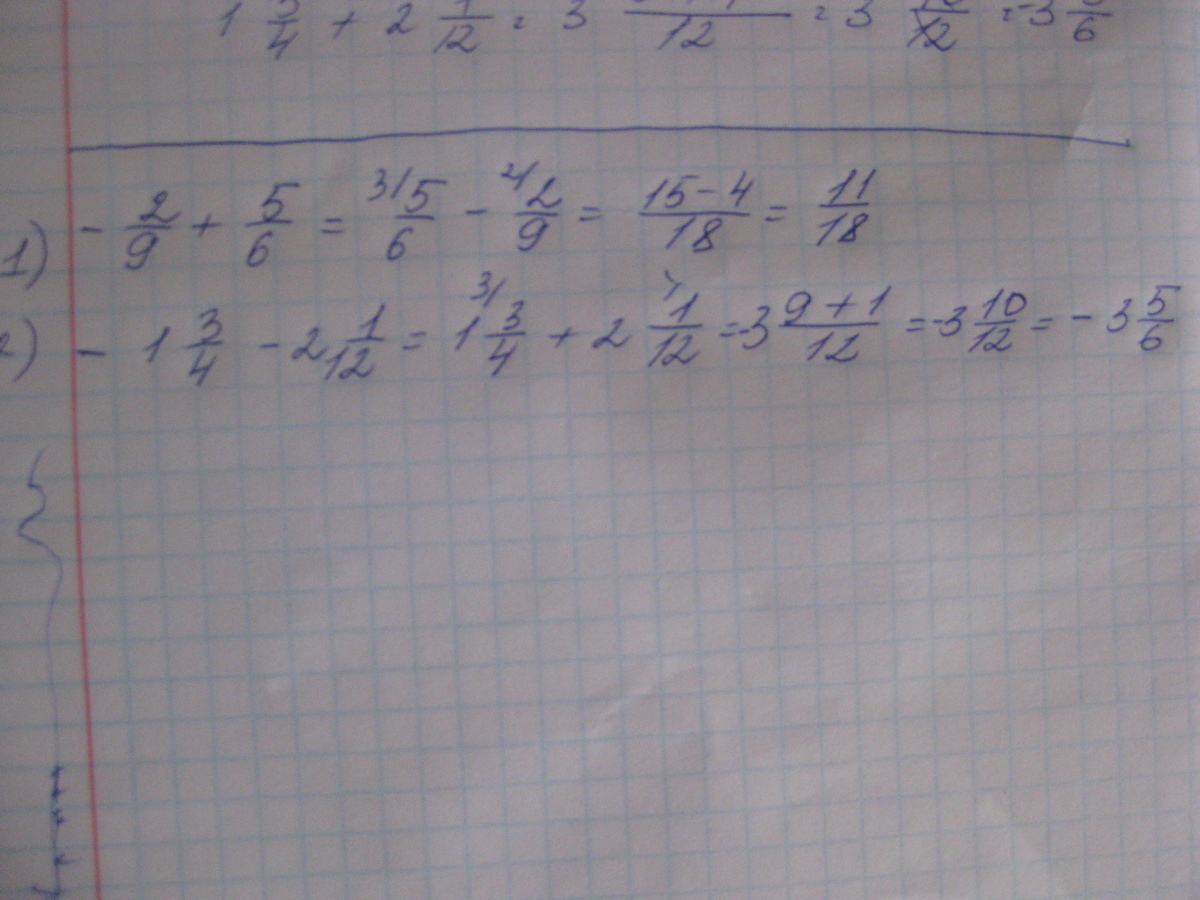 1 3/4 + 2 1/12 = 3 /12 = 3 /12 = -3 /6
1) - 2/9 + 5/6 = 3/ 5/6 - 2/ 2/9 = (15-4)/18 = 11/18
2) - 1 3/4 - 2 1/12 = 1 3/ 3/4 + 2 1/12 = -3 (9+1)/12 = -3 10/12 = -3 5/6